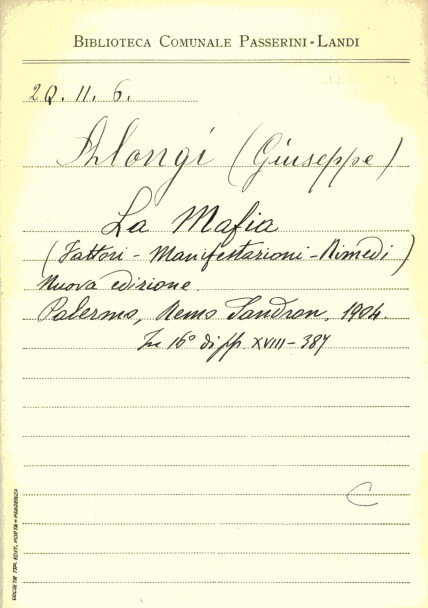 BIBLIOTECA COMUNALE PASSERINI-LANDI
2Q. II. 6.
Alongi (Giuseppe)
La Mafia
(Fattori - Manifestazioni - Rimedi)
Nuova edizione.
Palermo, Remo Sandron, 1904.
In 16° di pp. XVIII - 387
C
SOCIETÀ TIP. EDIT. PORTA - PIACENZA